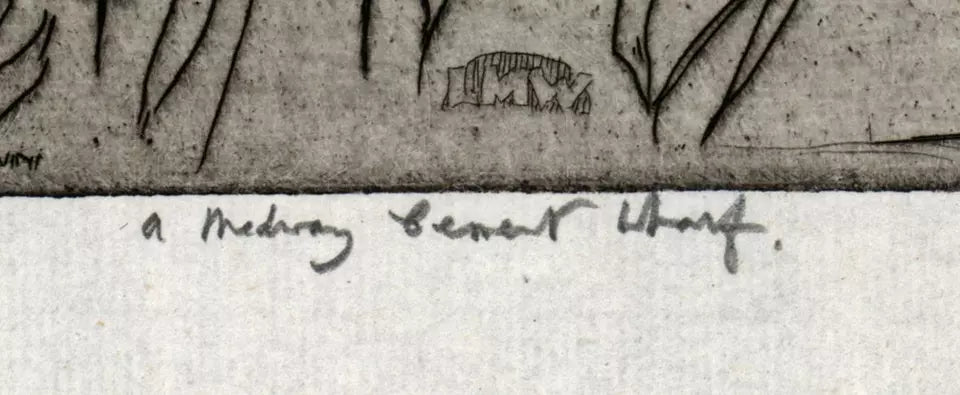 a Medway Cement Wharf.